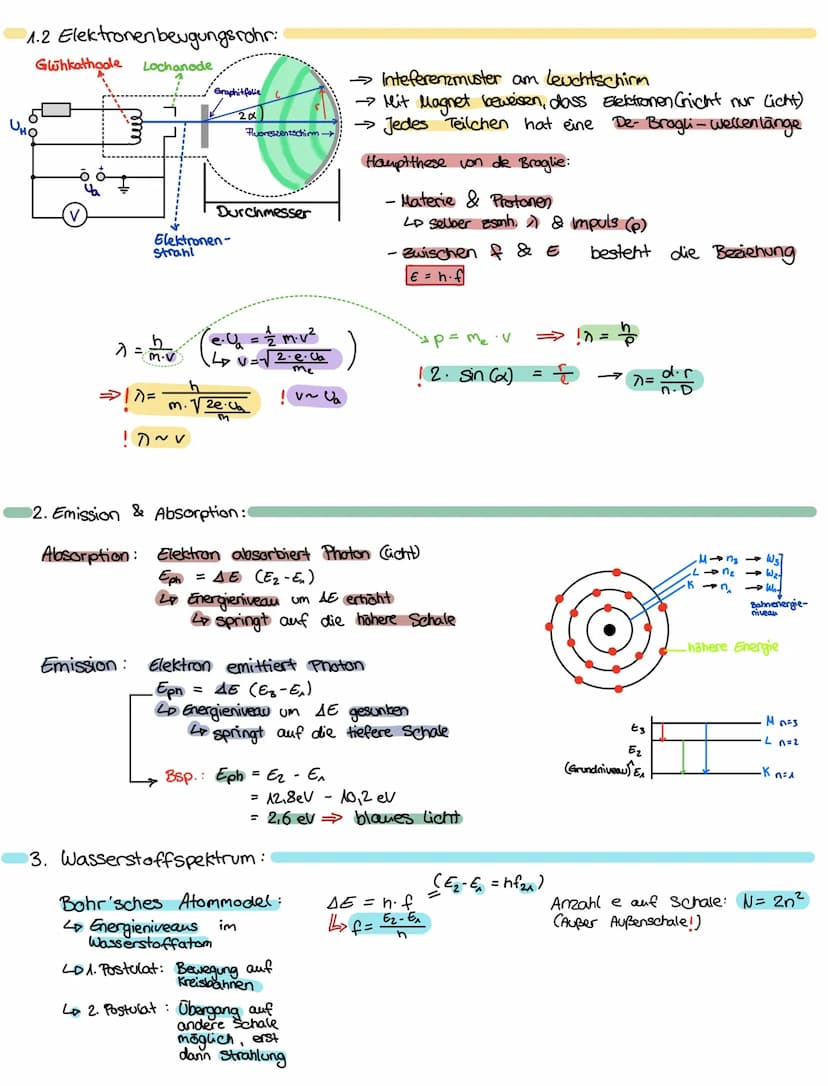 1.2 Elektronenbeugungsrohr:
Glühkathode Lochanode
Graphitfolie
L
r
2α
Fluoreszenzschirm →
U_H
U_a
- +
V
Durchmesser
Elektronen-
strahl
→ Inteferenzmuster am Leuchtschirm
→ Mit Magnet beweisen, dass Elektronen (nicht nur Licht)
→ Jedes Teilchen hat eine De-Brogli-Wellenlänge
Haupthese von de Broglie:
- Materie & Photonen
↳ selber zsmh. λ & Impuls (p)
- zwischen f & E besteht die Beziehung
E = h·f
λ = h/(m·v) (e·U_a = 1/2 m·v²
↳ v = √(2·e·U_a/m_e))
→ p = m_e · v ⇒ ! λ = h/p
! 2·sin(α) = r/l → λ = d·r/(n·D)
⇒ ! λ = h/(m·√(2e·U_a/m)) ! v ~ U_a
! λ ~ v
2. Emission & Absorption:
Absorption: Elektron absorbiert Photon (Licht)
E_ph = ΔE (E_2 - E_1)
↳ Energieniveau um ΔE erhöht
↳ springt auf die höhere Schale
M → n_3 → W_3
L → n_2 → W_2
K → n_1 → W_1
Bahnenergie-
niveau
höhere Energie
Emission: Elektron emittiert Photon
E_ph = ΔE (E_3 - E_1)
↳ Energieniveau um ΔE gesunken
↳ springt auf die tiefere Schale
Bsp.: E_ph = E_2 - E_1
= 12,8eV - 10,2 eV
= 2,6 eV ⇒ blaues Licht
E_3 M n=3
E_2 L n=2
(Grundniveau) E_1 K n=1
3. Wasserstoffspektrum:
Bohr'sches Atommodel:
↳ Energieniveaus im
Wasserstoffatom
↳ 1. Postulat: Bewegung auf
Kreisbahnen
↳ 2. Postulat: Übergang auf
andere Schale
möglich, erst
dann Strahlung
ΔE = h·f = (E_2 - E_1 = hf_21)
↳ f = (E_2 - E_1)/h
Anzahl e auf Schale: N = 2n²
(Außer Außenschale!)